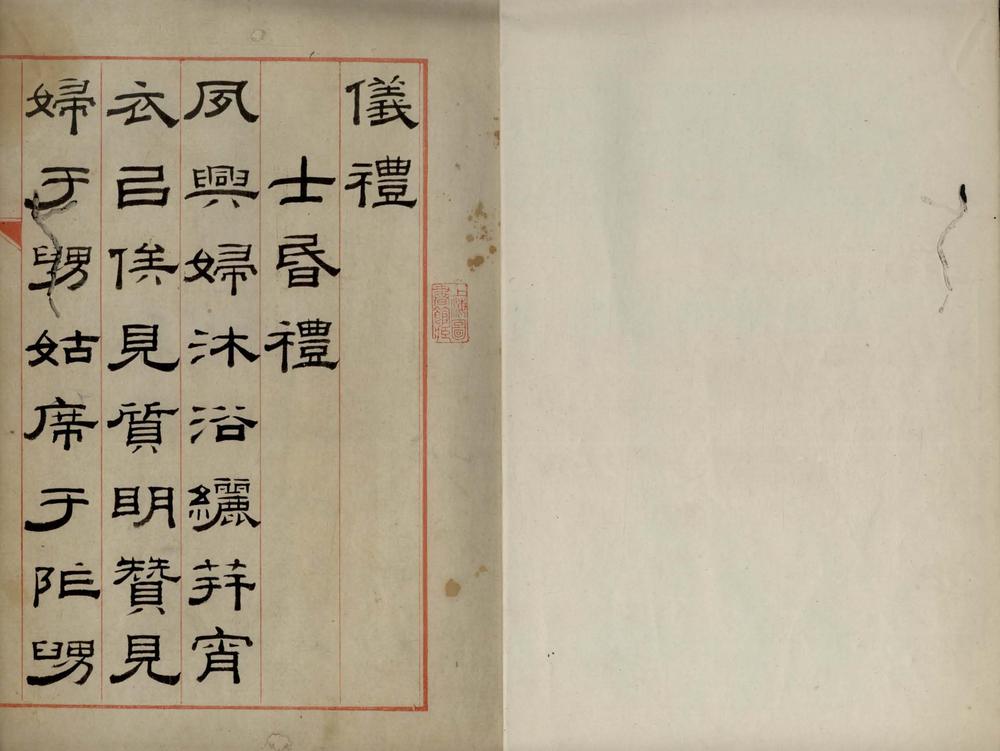 儀禮
士昏禮
夙興婦沐浴纚笄宵
衣㠯俟見質明贊見
婦于舅姑席于阼舅
上海圖書館藏